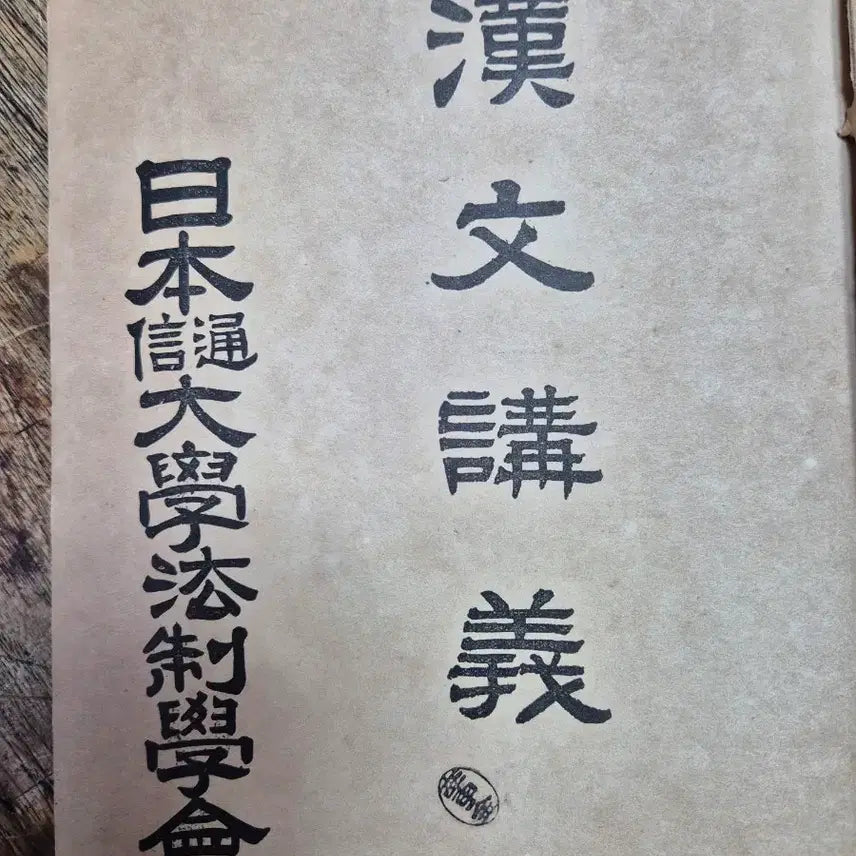 漢文講義
日本通信大學法制學會